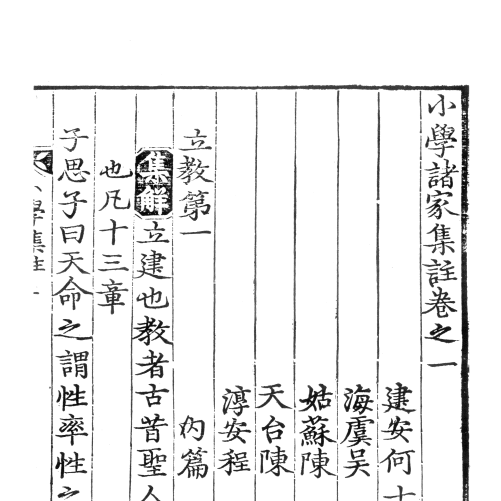 小學諸家集註卷之一
建安何士
海虞吴
姑蘇陳
天台陳
淳安程
立教第一 内篇
集解 立建也教者古昔聖人
也凡十三章
子思子曰天命之謂性率性之
小學集註 一